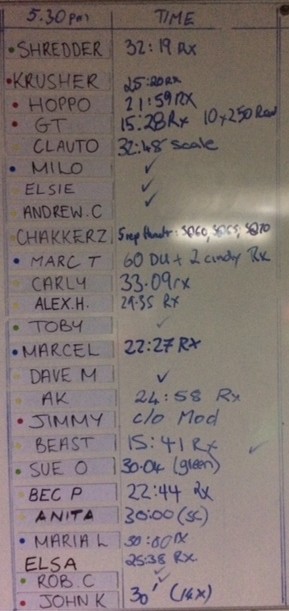 5.30 pm TIME
SHREDDER 32:19 Rx
KRUSHER 25:20Rx
HOPPO 21:59 RX
GT 15:28 Rx 10x250 Row
CLAUTO 32:48 Scale
MILO ✓
ELSIE ✓
ANDREW.C ✓
CHAKKERZ 5 rep
MARC T 60 DU + 2 cindy Rx
CARLY 33.09rx
ALEX.H. 29:35 Rx
TOBY ✓
MARCEL 22:27 RX
DAVE M ✓
AK 24:58 Rx
JIMMY c/o Mod
BEAST 15:41 Rx ✓
SUE O 30.04 (green)
BEC P 22:44 Rx
ANITA 30:00 (sc)
MARIA L 30:00
ELSA 25:38 Rx
ROB.C ✓
JOHN K 30' (14x)